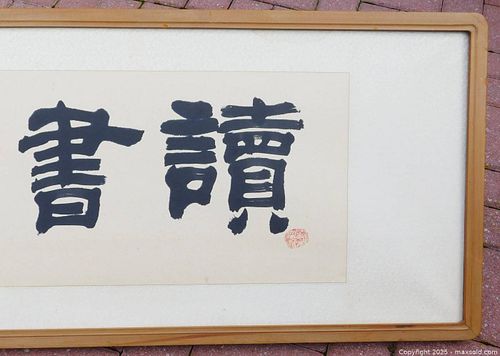 讀書
Copyright 2025 - maxsold.com